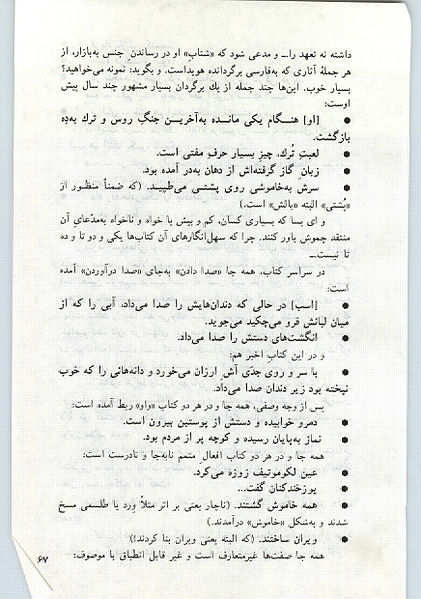 داشته نه تعهد را... و مدعی شود که «شتابِ» او در رساندنِ جنس به‌بازار، از
هر جملهٔ آثاری که به‌فارسی برگردانده هویداست. و بگوید: نمونه می‌خواهید؟
بسیار خوب. این‌ها چند جمله از یك برگردان بسیار مشهور چند سال پیش
اوست:
● [او] هنـــگام یکی مانـــده به‌آخریـــن جنگ روس و ترك به‌دِه
بازگشت.
● لعبتِ تُرك، چیزِ بسیار حرفِ مفتی است.
● زبانِ گاز گرفته‌اش از دهان به‌در آمده بود.
● سرش به‌خاموشی روی پشتـــی می‌طپیـــد. (که ضمناً منظور از
«پُشتی» البته «بالش» است.)
و ای بسا که بسیاری کسان، کم و بیش یا خواه و ناخواه به‌مدّعای آن
منتقد چموش باور کنند. چرا که سهل‌انگارهای آن کتاب‌ها یکی و دو تا و ده
تا نیست...
در سراسر کتاب، همه جا «صدا دادن» به‌جای «صدا درآوردن» آمده
است:
● [اسب] در حالی که دندان‌هایش را صدا می‌داد، آبی را که از
میان لبانش فرو می‌چکید می‌جوید.
● انگشت‌های دستش را صدا می‌داد.
و در این کتاب اخیر هم:
● با سر و روی جدّی آش ارزان می‌خورد و دانه‌هائی را که خوب
نپخته بود زیر دندان صدا می‌داد.
پس از وجه وصفی، همه جا و در هر دو کتاب «واو» ربط آمده است:
● دمرو خوابیده و دستش از پوستین بیرون است.
● نماز به‌پایان رسیده و کوچه پر از مردم بود.
همه جا و در هر دو کتاب افعالِ متمم نابه‌جا و نادرست است:
● عینِ لکوموتیف زوزه می‌کرد.
● پوزخندکنان گفت...
● همه خاموش گشتند. (ناچار یعنی بر اثر مثلاً وِرد یا طلسمی مسخ
شدند و به‌شکل «خاموش» درآمدند.)
● ویران ساختند. (که البته یعنی ویران بنا کردند!)
همه جا صفت‌ها غیرمتعارف است و غیر قابل انطباق با موصوف:
۶۷